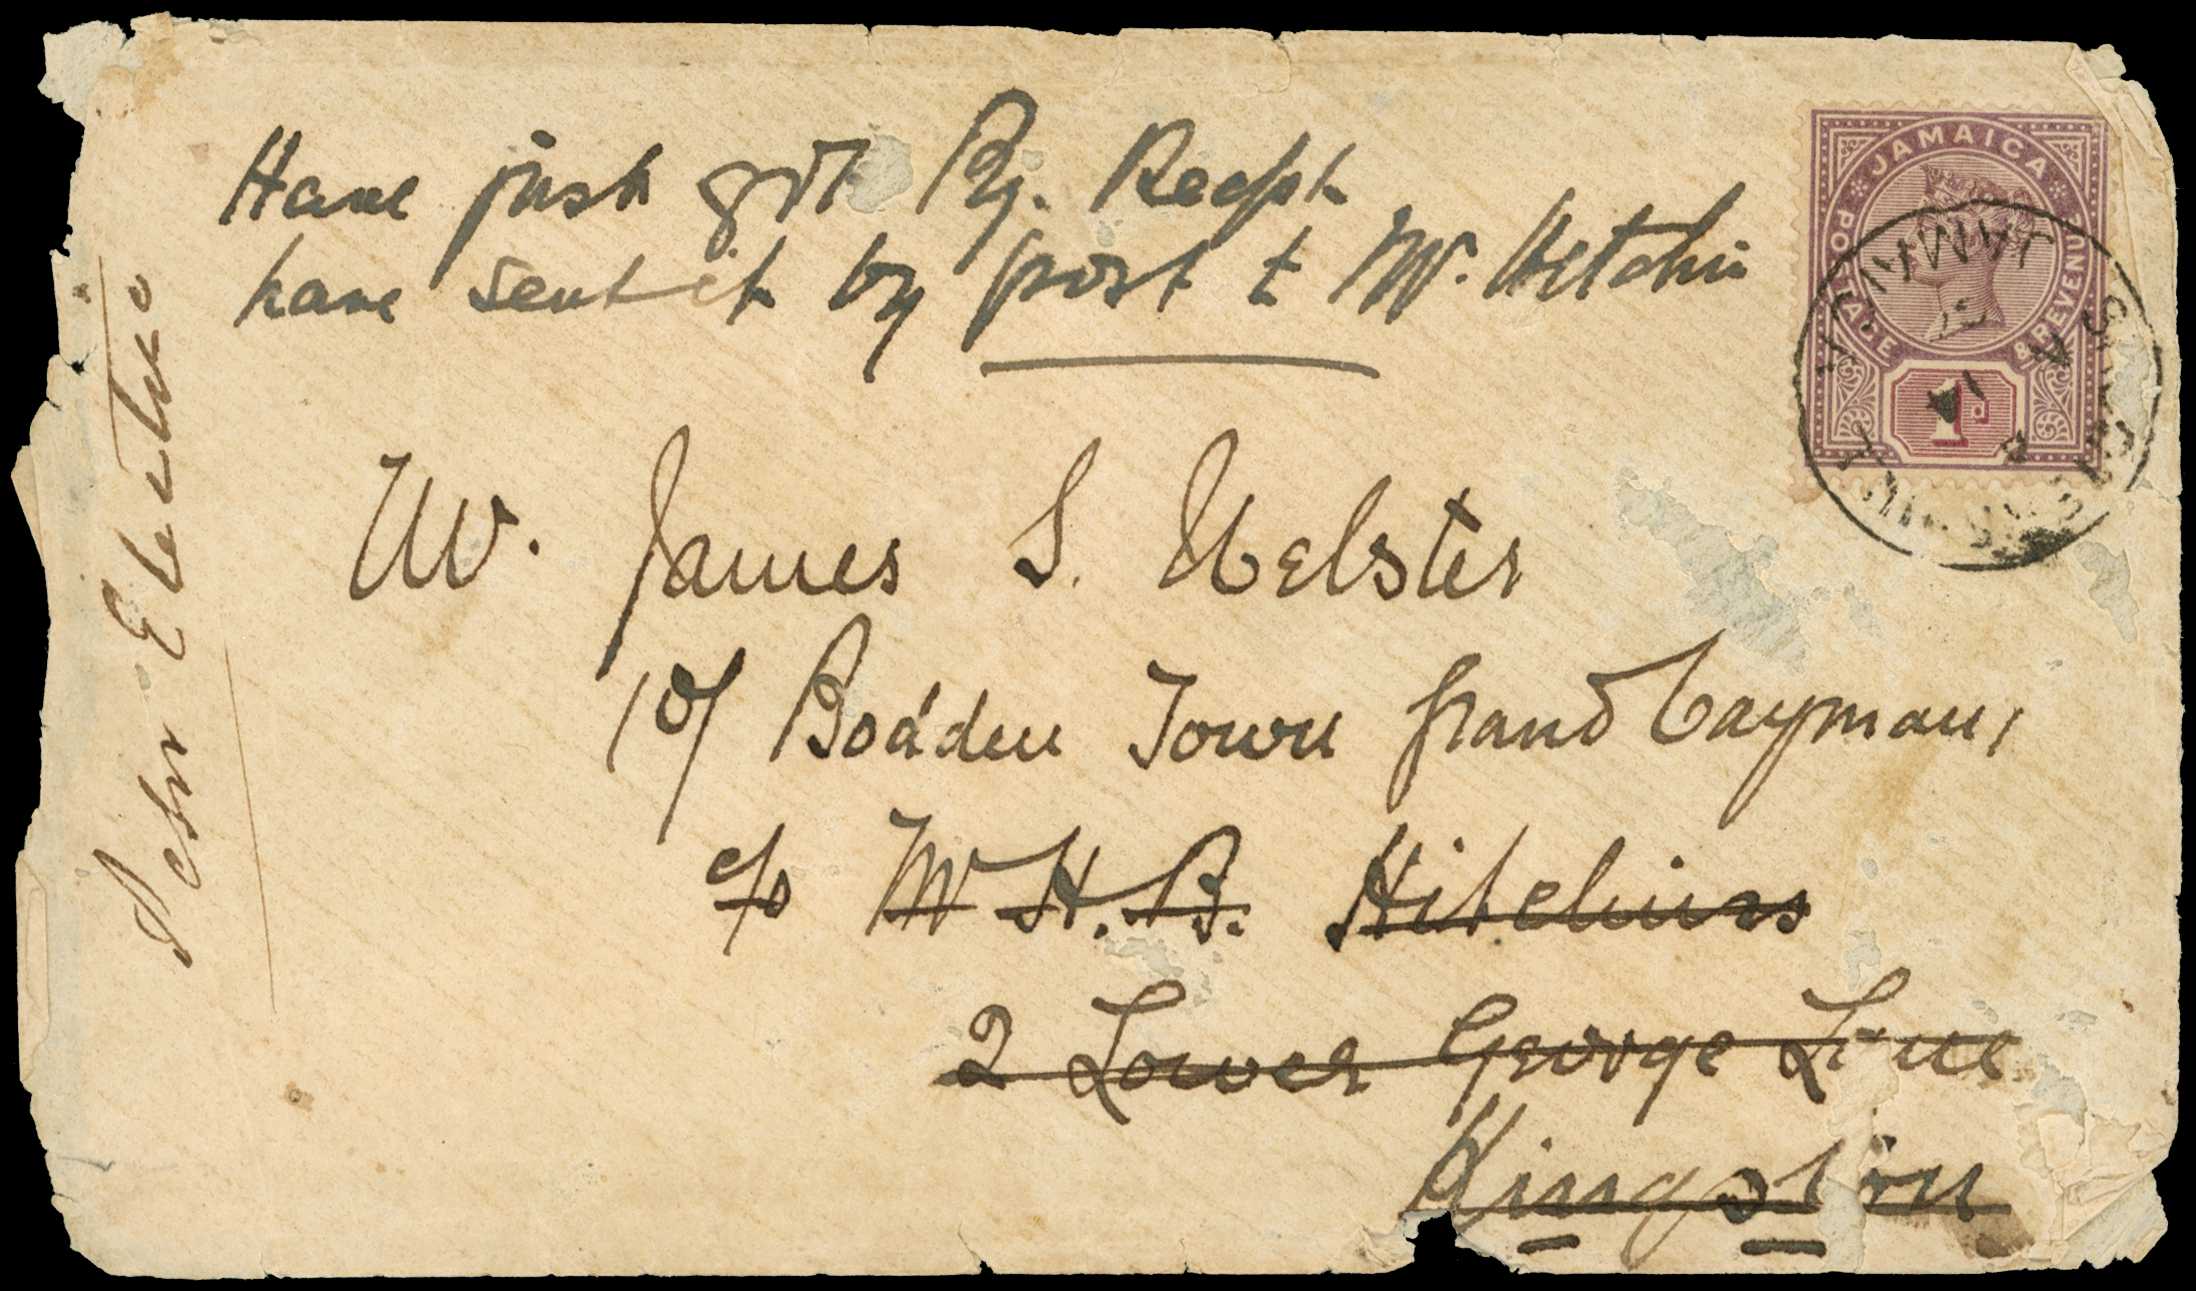 Have just got Pg. Recpt
have sent it by post to Mr. Hitchin
Mr. James S. Webster
of Bodden Town Grand Cayman,
c/o Mr H. B. Hitchins
2 Lower George Lane
Kingston
Per
JAMAICA
POSTAGE & REVENUE
1d
JAMAICA